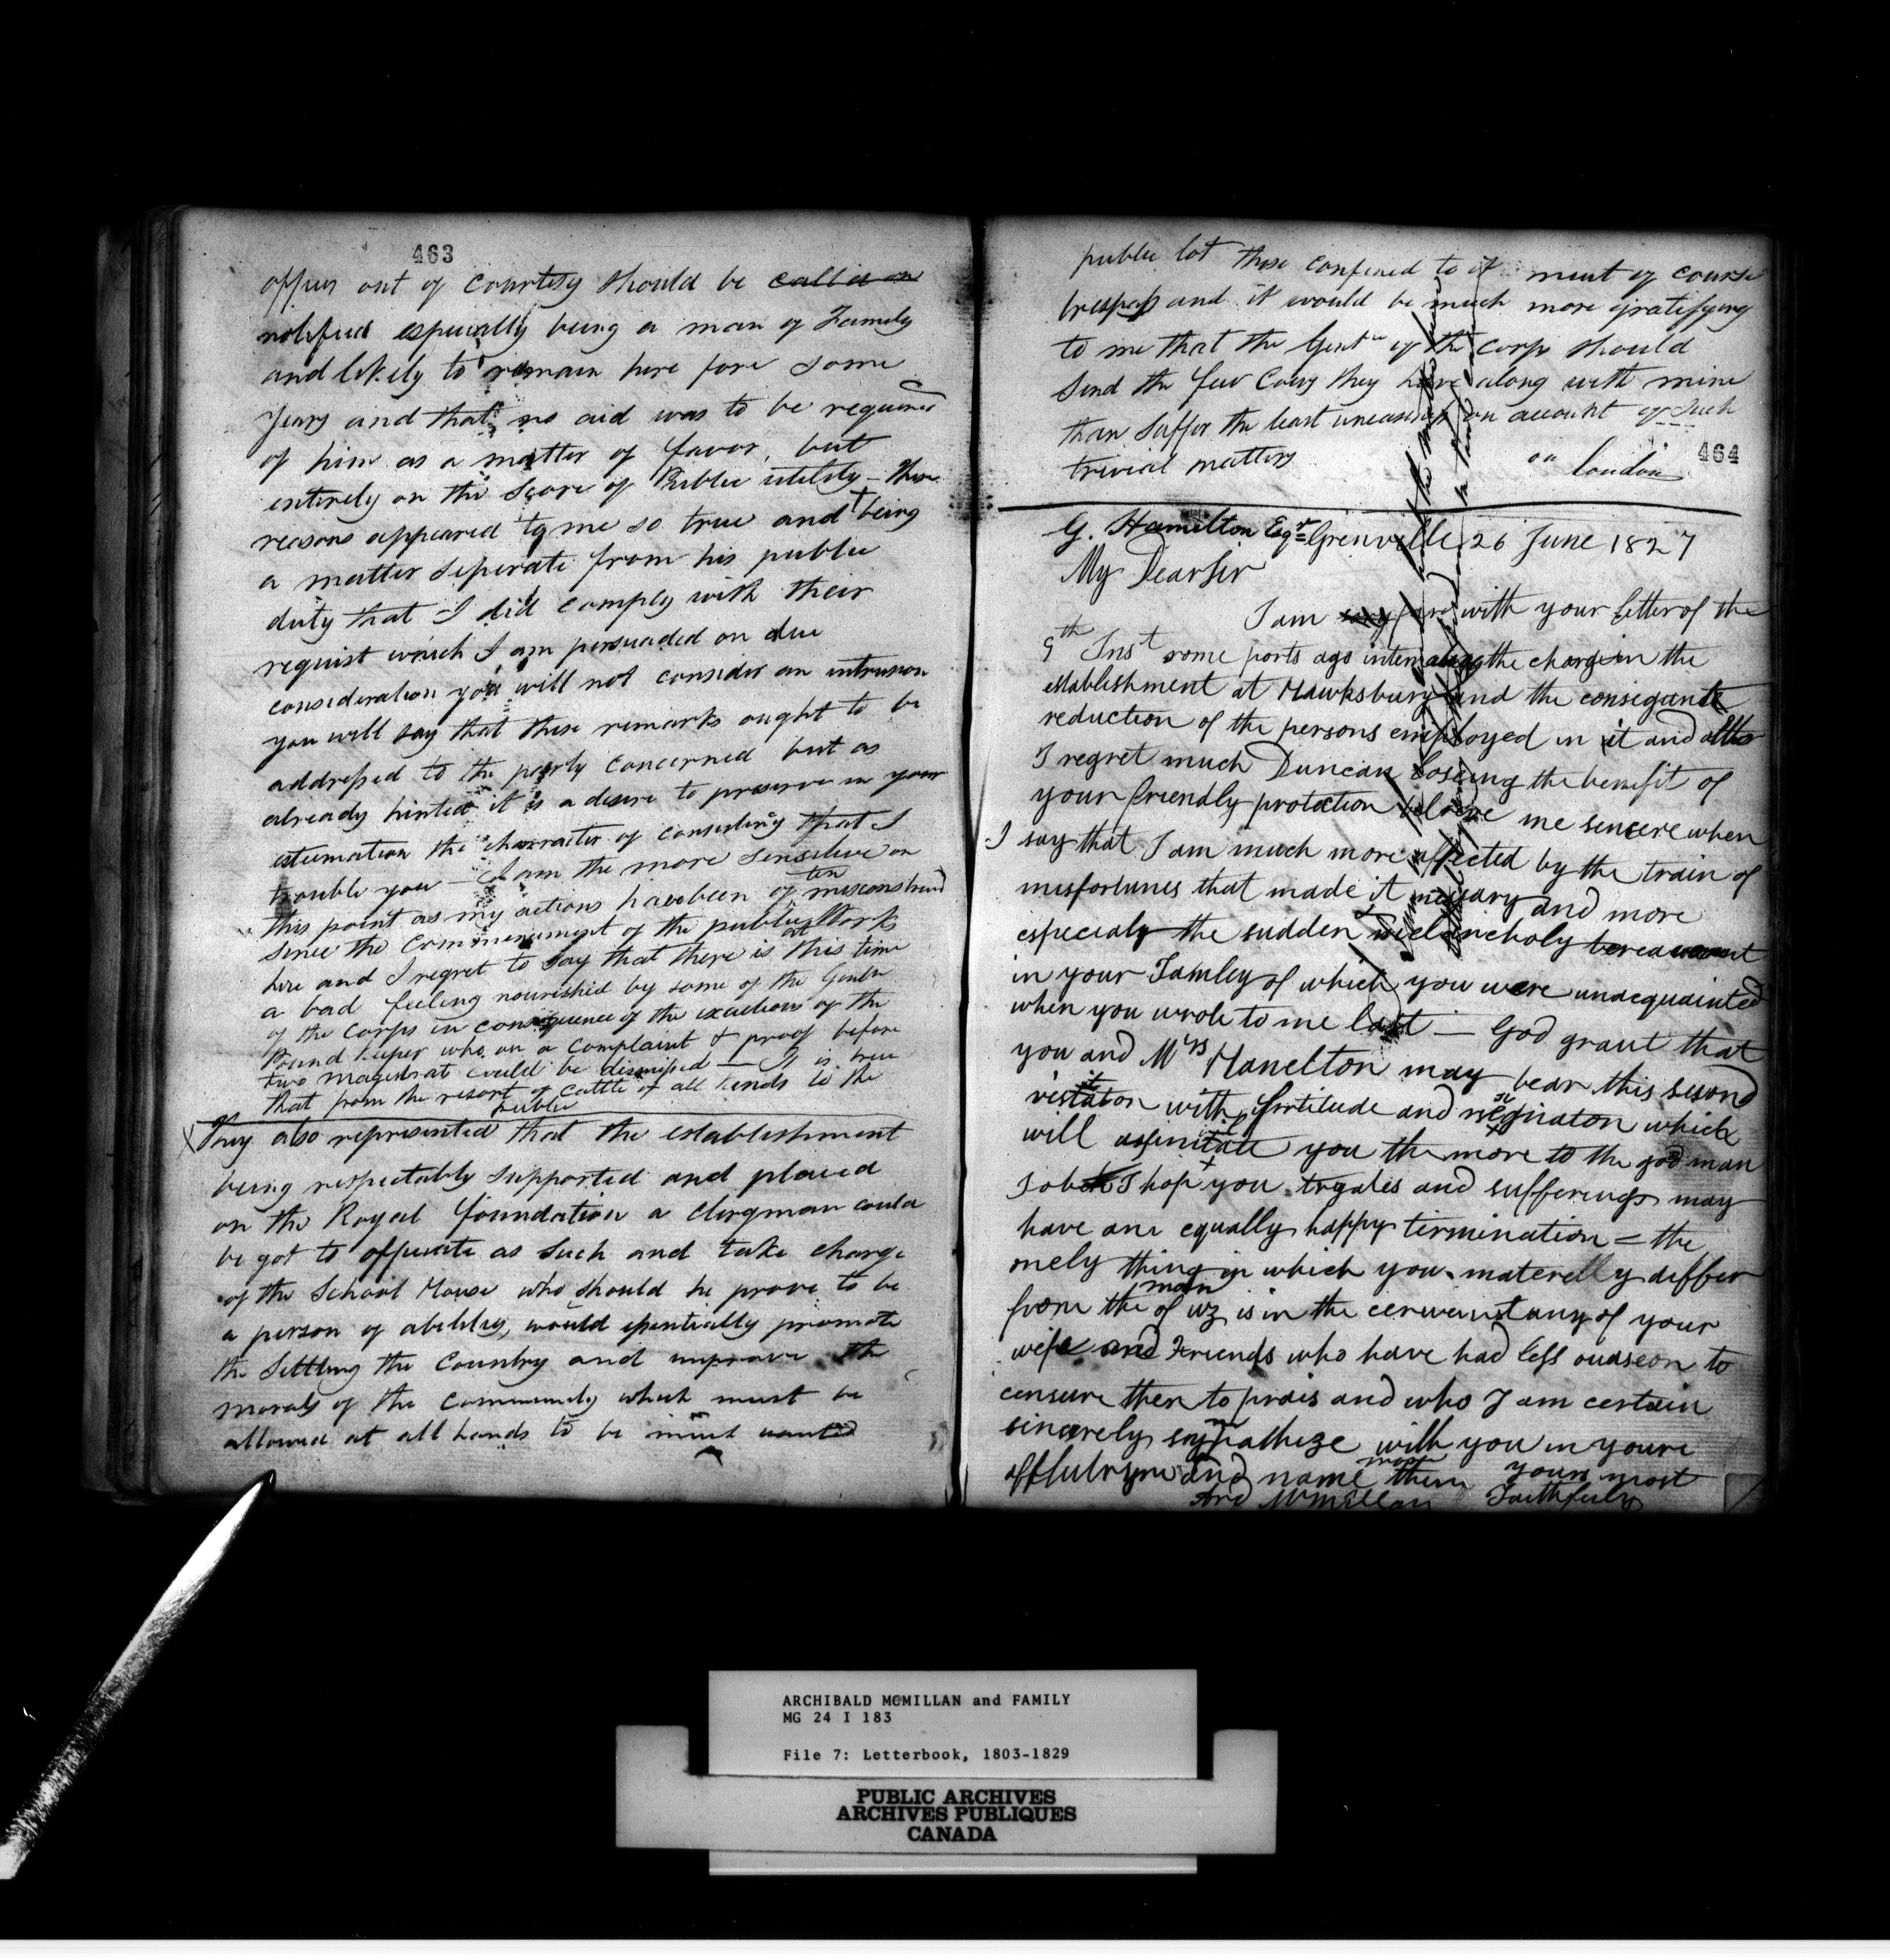 463
offices out of Courtesy should be called on
notified especially being a man of Family
and likely to remain here fore some
years and that no aid was to be required
of him as a matter of favor, but
entirely on the Score of Public utility — These
reasons appeared to me so true and being
a matter seperate from his public
duty that I did comply with their
request which I am persuaded on due
consideration you will not consider an intrusion
you will say that these remarks ought to be
addressed to the party concerned but as
already hinted it is a desire to preserve in your
estimation the character of consisting that I
trouble you — I am the more sensitive on
this point as my actions have been often misconstrued
since the Commencement of the public Works
here and I regret to say that there is at this time
a bad feeling nourished by some of the Gentn
of the Corps in consequence of the exertions of the
Pound keeper who on a Complaint & proof before
two magistrat could be dismissed — It is true
that from the resort of cattle of all kinds to the
public
X They also represented that the establishment
being respectably supported and placed
on the Royal foundation a Clergman could
be got to officiate as such and take charge
of the School House who should he prove to be
a person of ability, would essentially promote
the Settling the Country and improve the
morals of the Community which must be
allowed at all hands to be much wanted
public lot those confined to it must of course
trespass and it would be much more gratifying
to me that the Gentn of the Corps should
send the few Cows they have along with mine
than suffer the least uneasiness on account of such
trivial matters
on London
464
G. Hamilton Esqr Grenville 26 June 1827
My Dear Sir
I am with your letter of the
9th Inst some posts ago the change in the
establishment at Hawksbury and the consequent
reduction of the persons employed in it and altho
I regret much Duncan Loseing the benefit of
your friendly protection beleive me sencere when
I say that I am much more affected by the train of
misfortunes that made it necessary and more
especialy the sudden melancholy bereavement
in your Famley of which you were unacquainted
when you wrote to me last — God grant that
you and Mrs Hamelton may bear this second
visitation with fortitude and resignaton which
will assimitate you the more to the good man
Job I hop you tryales and sufferings may
have ane equally happy termination = the
onely thing in which you materelly differ
from the man of uz is in the cercumstany of your
wife and Friends who have had less ouaseon to
censure then to prais and who I am certain
sincerely sympathize with you in youre
and name them most yours most
Ard McMillan Faithfuly
ARCHIBALD MCMILLAN and FAMILY
MG 24 I 183
File 7: Letterbook, 1803-1829
PUBLIC ARCHIVES
ARCHIVES PUBLIQUES
CANADA